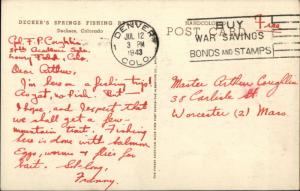 DECKER'S SPRINGS FISHING RE
Deckers, Colorado
HANDCOLORED
POST CARD
Free
DENVER
JUL 12
3 PM
1943
COLO.
BUY
WAR SAVINGS
BONDS AND STAMPS
Cpl. F. P. Coughlin
Lowry Field, Colo.
Dear Arthur,
I'm on a fishing trip!
August, no fish. But I
hope, and I expect that
we shall get a few
mountain trout. Fishing
here is done with salmon
eggs, worms & flies for
bait. So-long,
Franny
Master Arthur Coughlin
38 Carlisle St
Worcester (2) Mass.